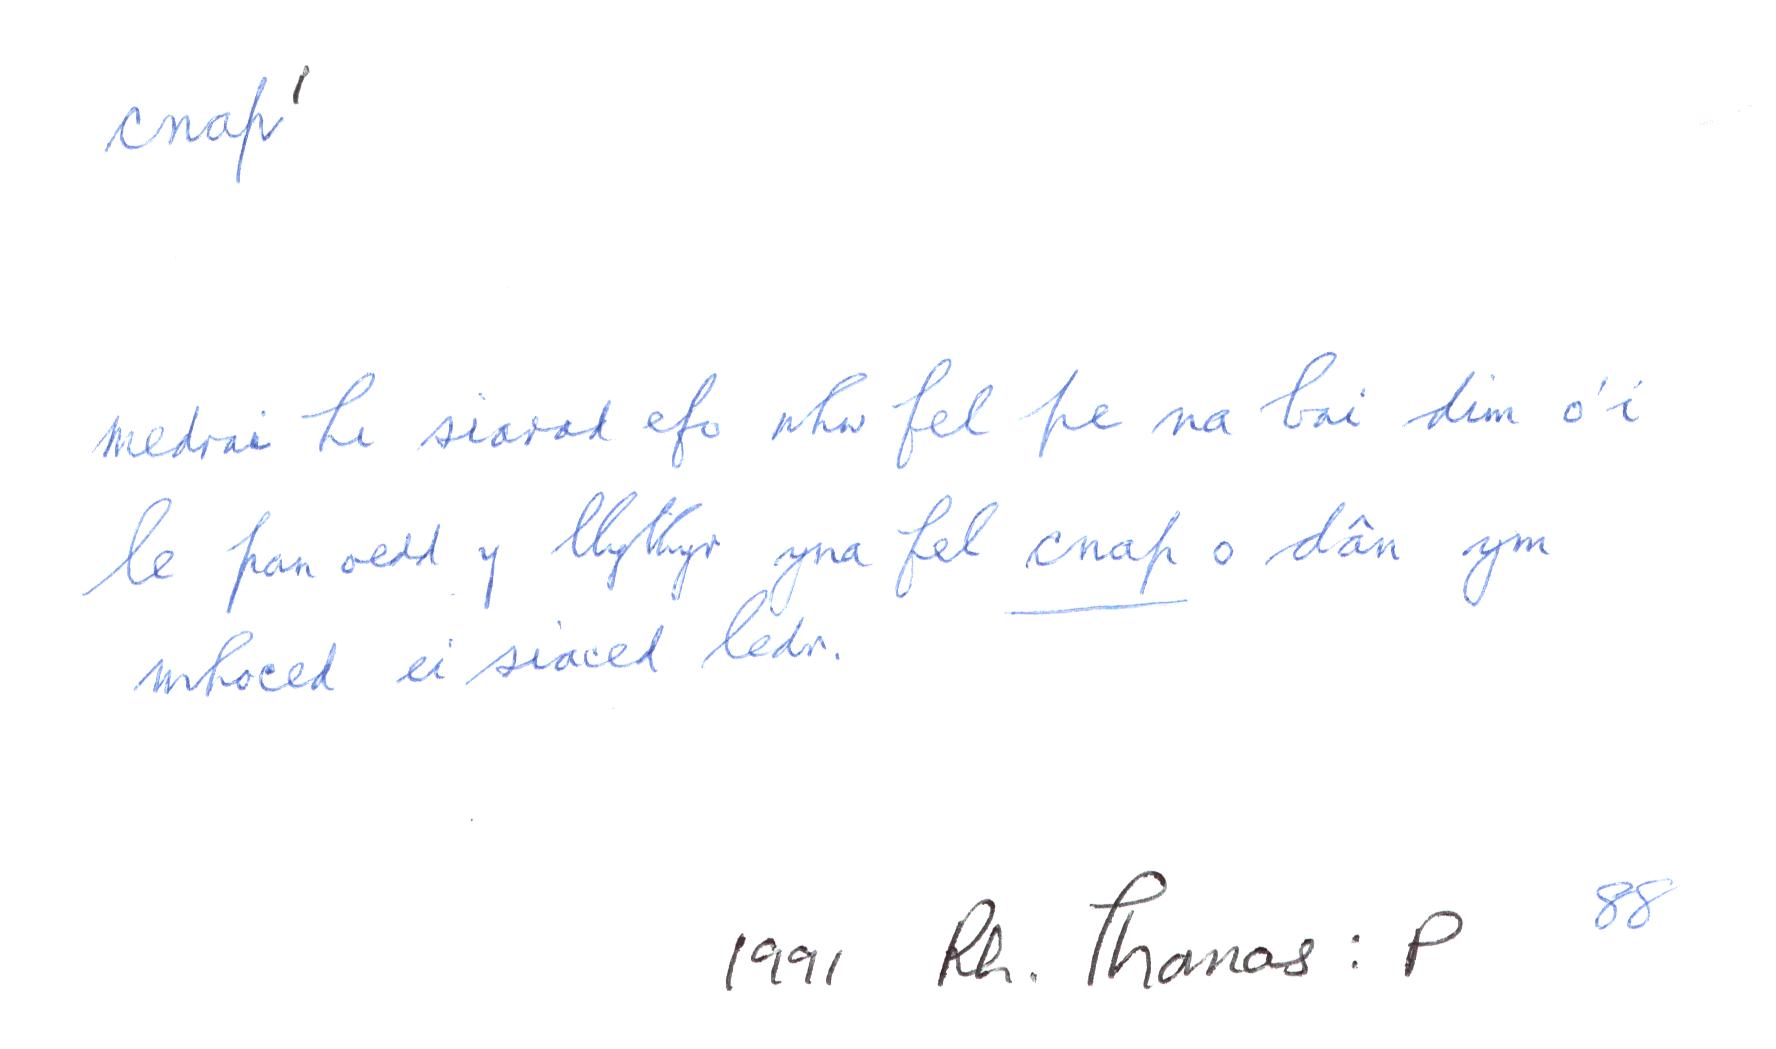 cnap¹
medrai hi siarad efo nhw fel pe na bai dim o'i
le pan oedd y llythyr yna fel cnap o dân ym
mhoced ei siaced ledr.
88
1991 Rh. Thomas : P